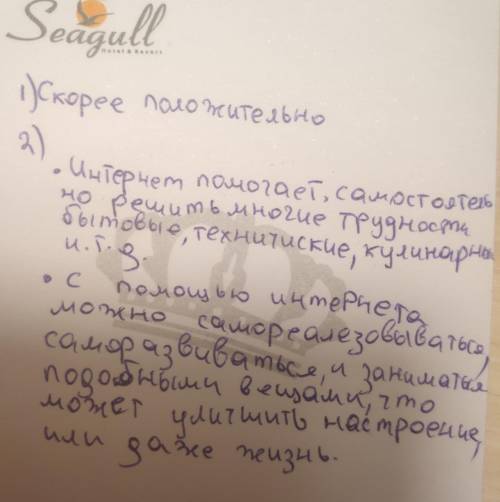 Seagull
Hotel & Resort
1) Скорее положительно
2)
• Интернет помогает, самостоятель
но решить многие трудности
бытовые, техничиские, кулинарны
и.т.д.
• С помощью интернета
можно самореалезовываться,
саморазвиваться, и заниматься
подобными вещами, что
может улучшить настроение,
или даже жизнь.